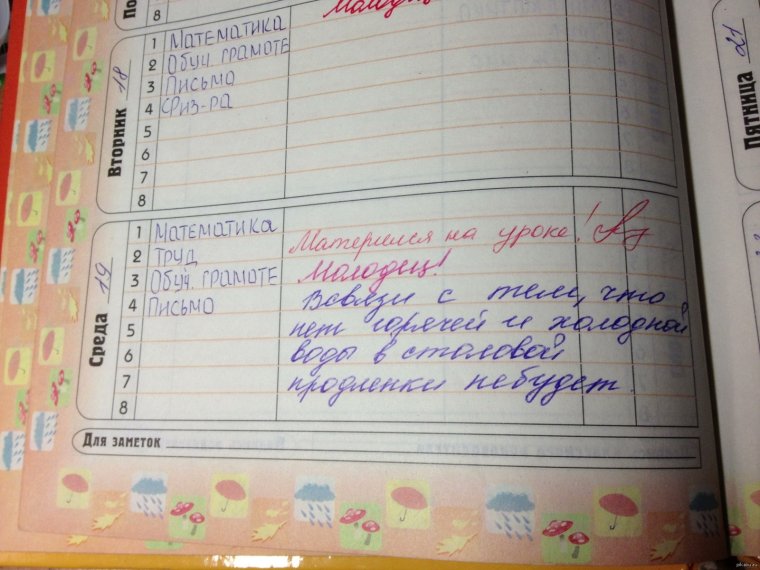 По
8
Молодец
Вторник 18
1 Математика
2 Обуч. грамоте
3 Письмо
4 Физ-ра
5
6
7
8
Среда 19
1 Математика
2 Труд
3 Обуч. грамоте
4 Письмо
5
6
7
8
Матерился на уроке!
Молодец!
Всвязи с тем, что
нет горячей и холодной
воды в столовой
продленки небудет.
Для заметок
Пятница 21